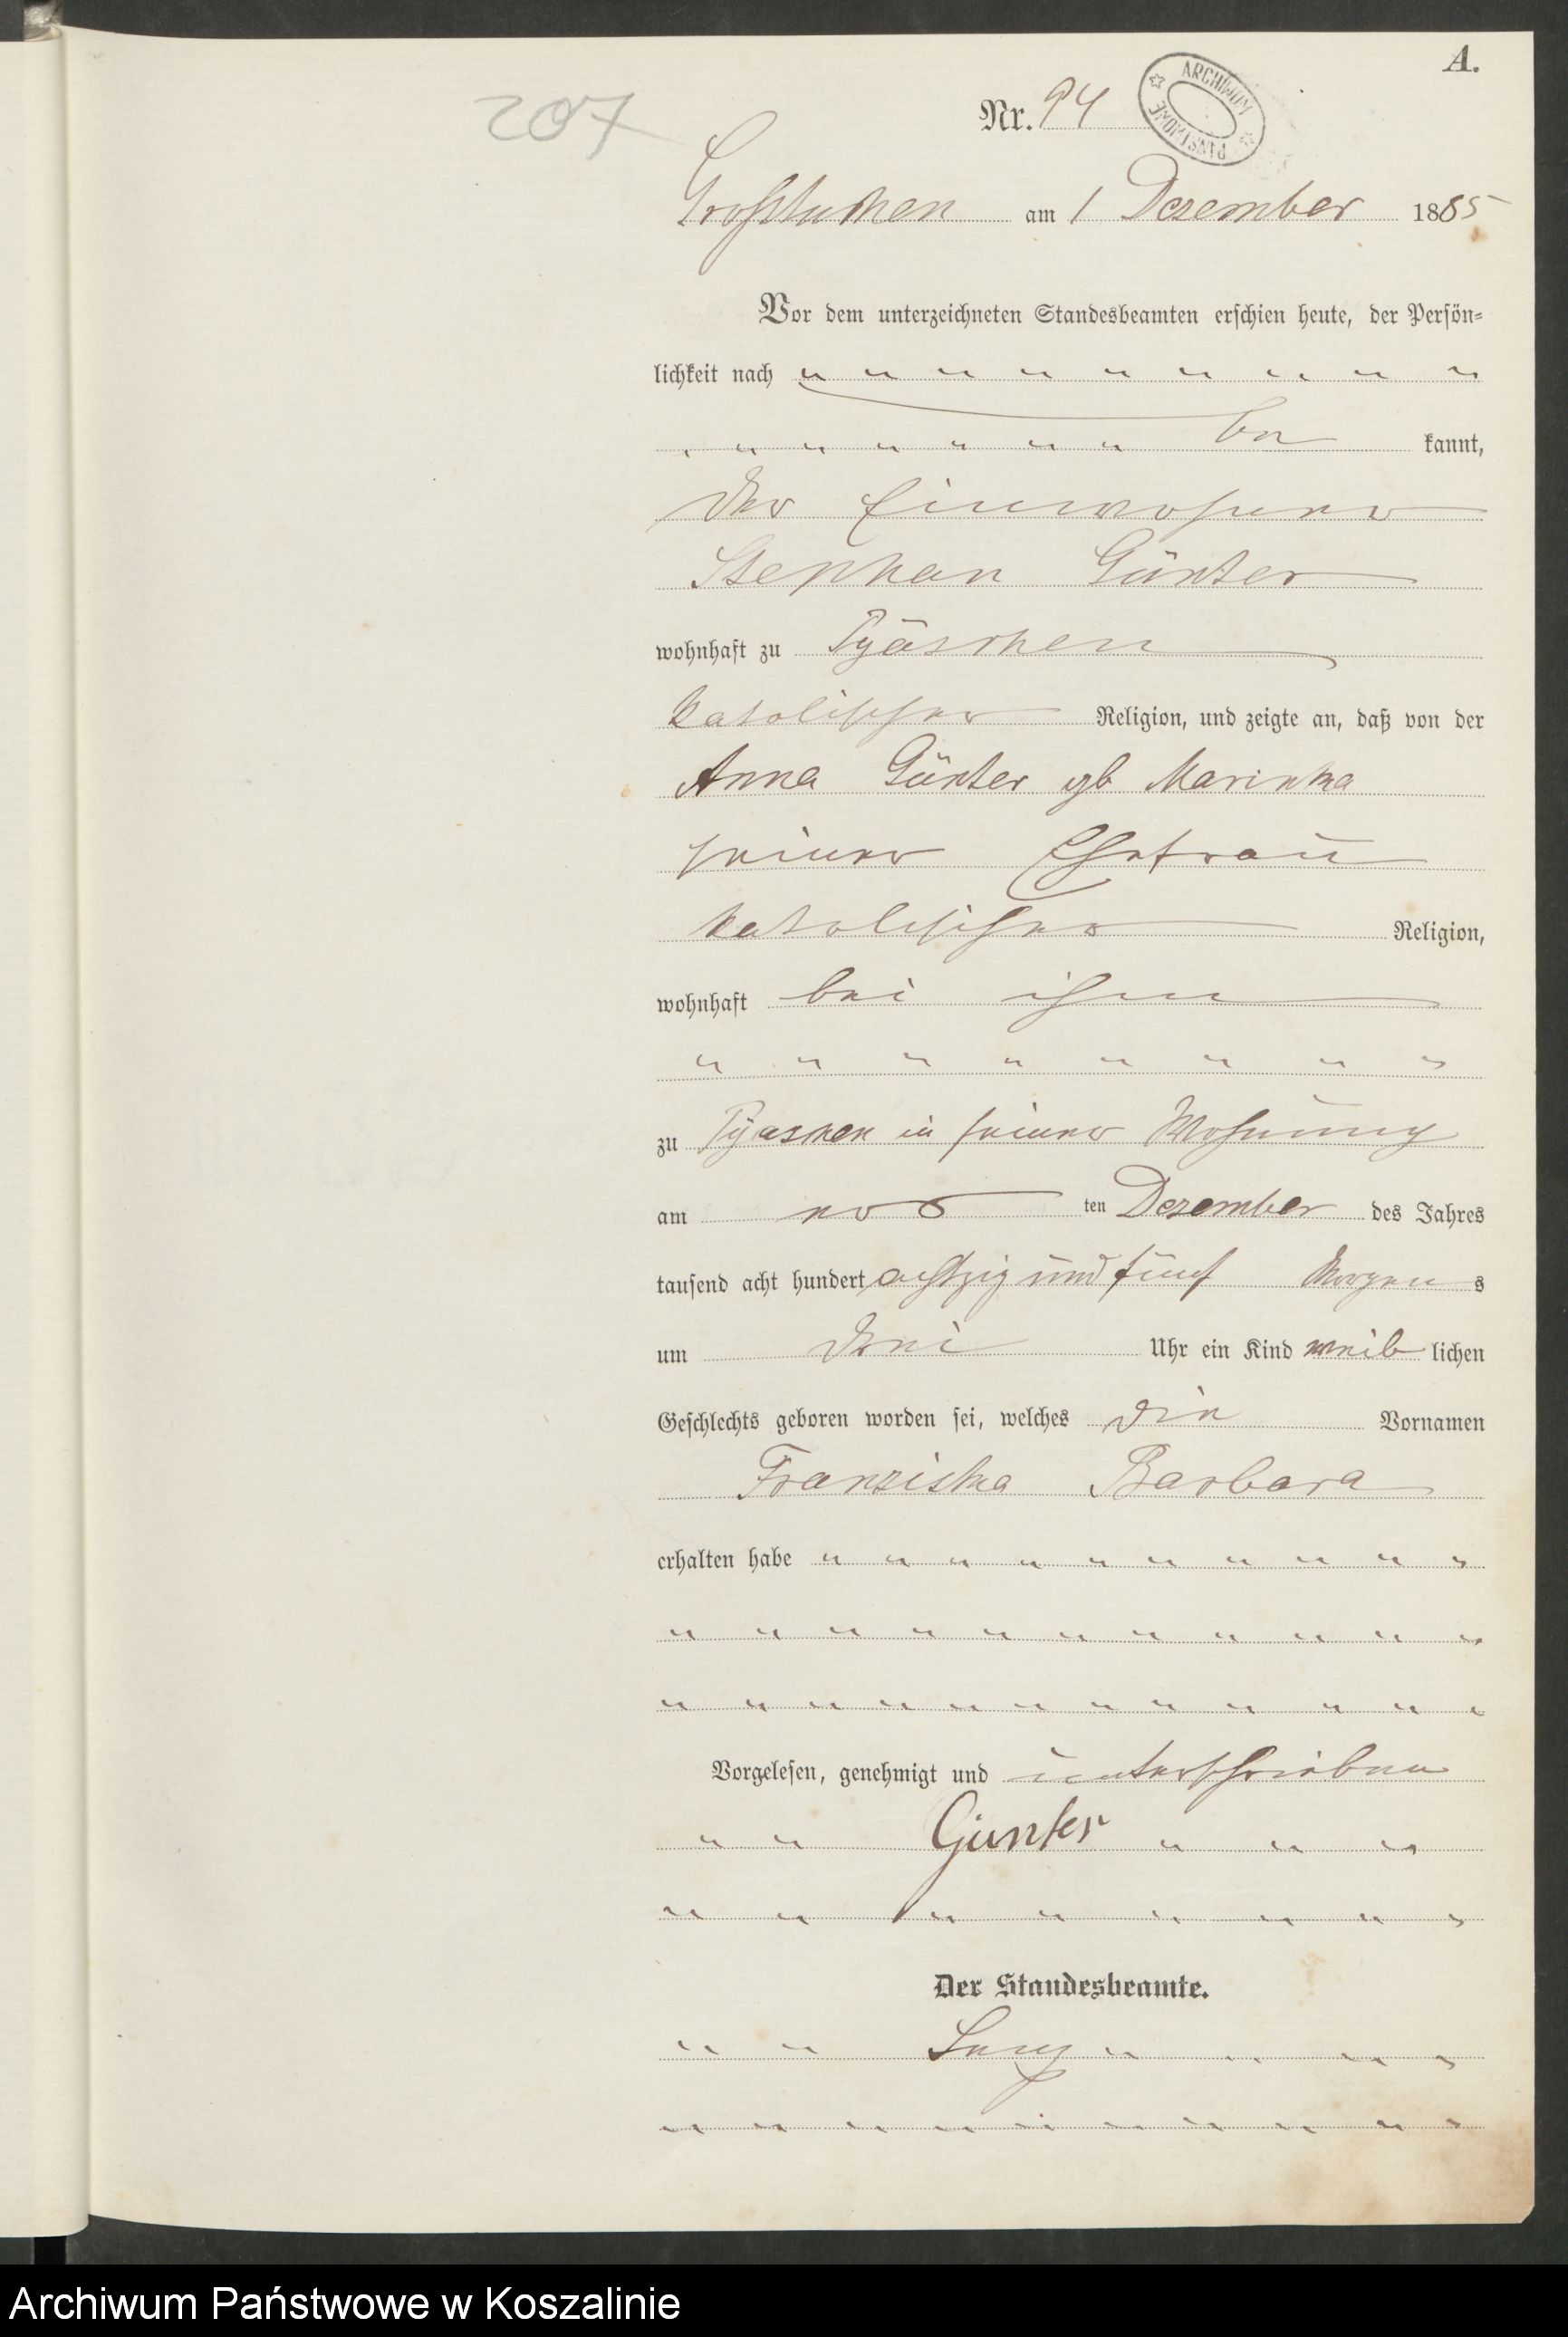 A.
207
Nr. 94
ARCHIWUM PAŃSTWOWE
Großtuchen am 1 Dezember 1885
Vor dem unterzeichneten Standesbeamten erschien heute, der Persön-
lichkeit nach " " " " " " " " "
" " " " " " " be kannt,
der Einwohner
Stephan Günter
wohnhaft zu Pyaschen
katolischer Religion, und zeigte an, daß von der
Anna Günter gb Marinka
seiner Ehefrau
katolischer Religion,
wohnhaft bei ihm
" " " " " " " "
zu Pyaschen in seiner Wohnung
am ersten Dezember des Jahres
tausend acht hundert achtzig und fünf Morgens
um drei Uhr ein Kind weiblichen
Geschlechts geboren worden sei, welches die Vornamen
Franziska Barbara
erhalten habe " " " " " " " " " "
" " " " " " " " " " "
" " " " " " " " " " " "
Vorgelesen, genehmigt und unterschrieben
" " Günter " " "
" " " " " " " "
Der Standesbeamte.
" " " " " "
" " " " " " " " " "
Archiwum Państwowe w Koszalinie